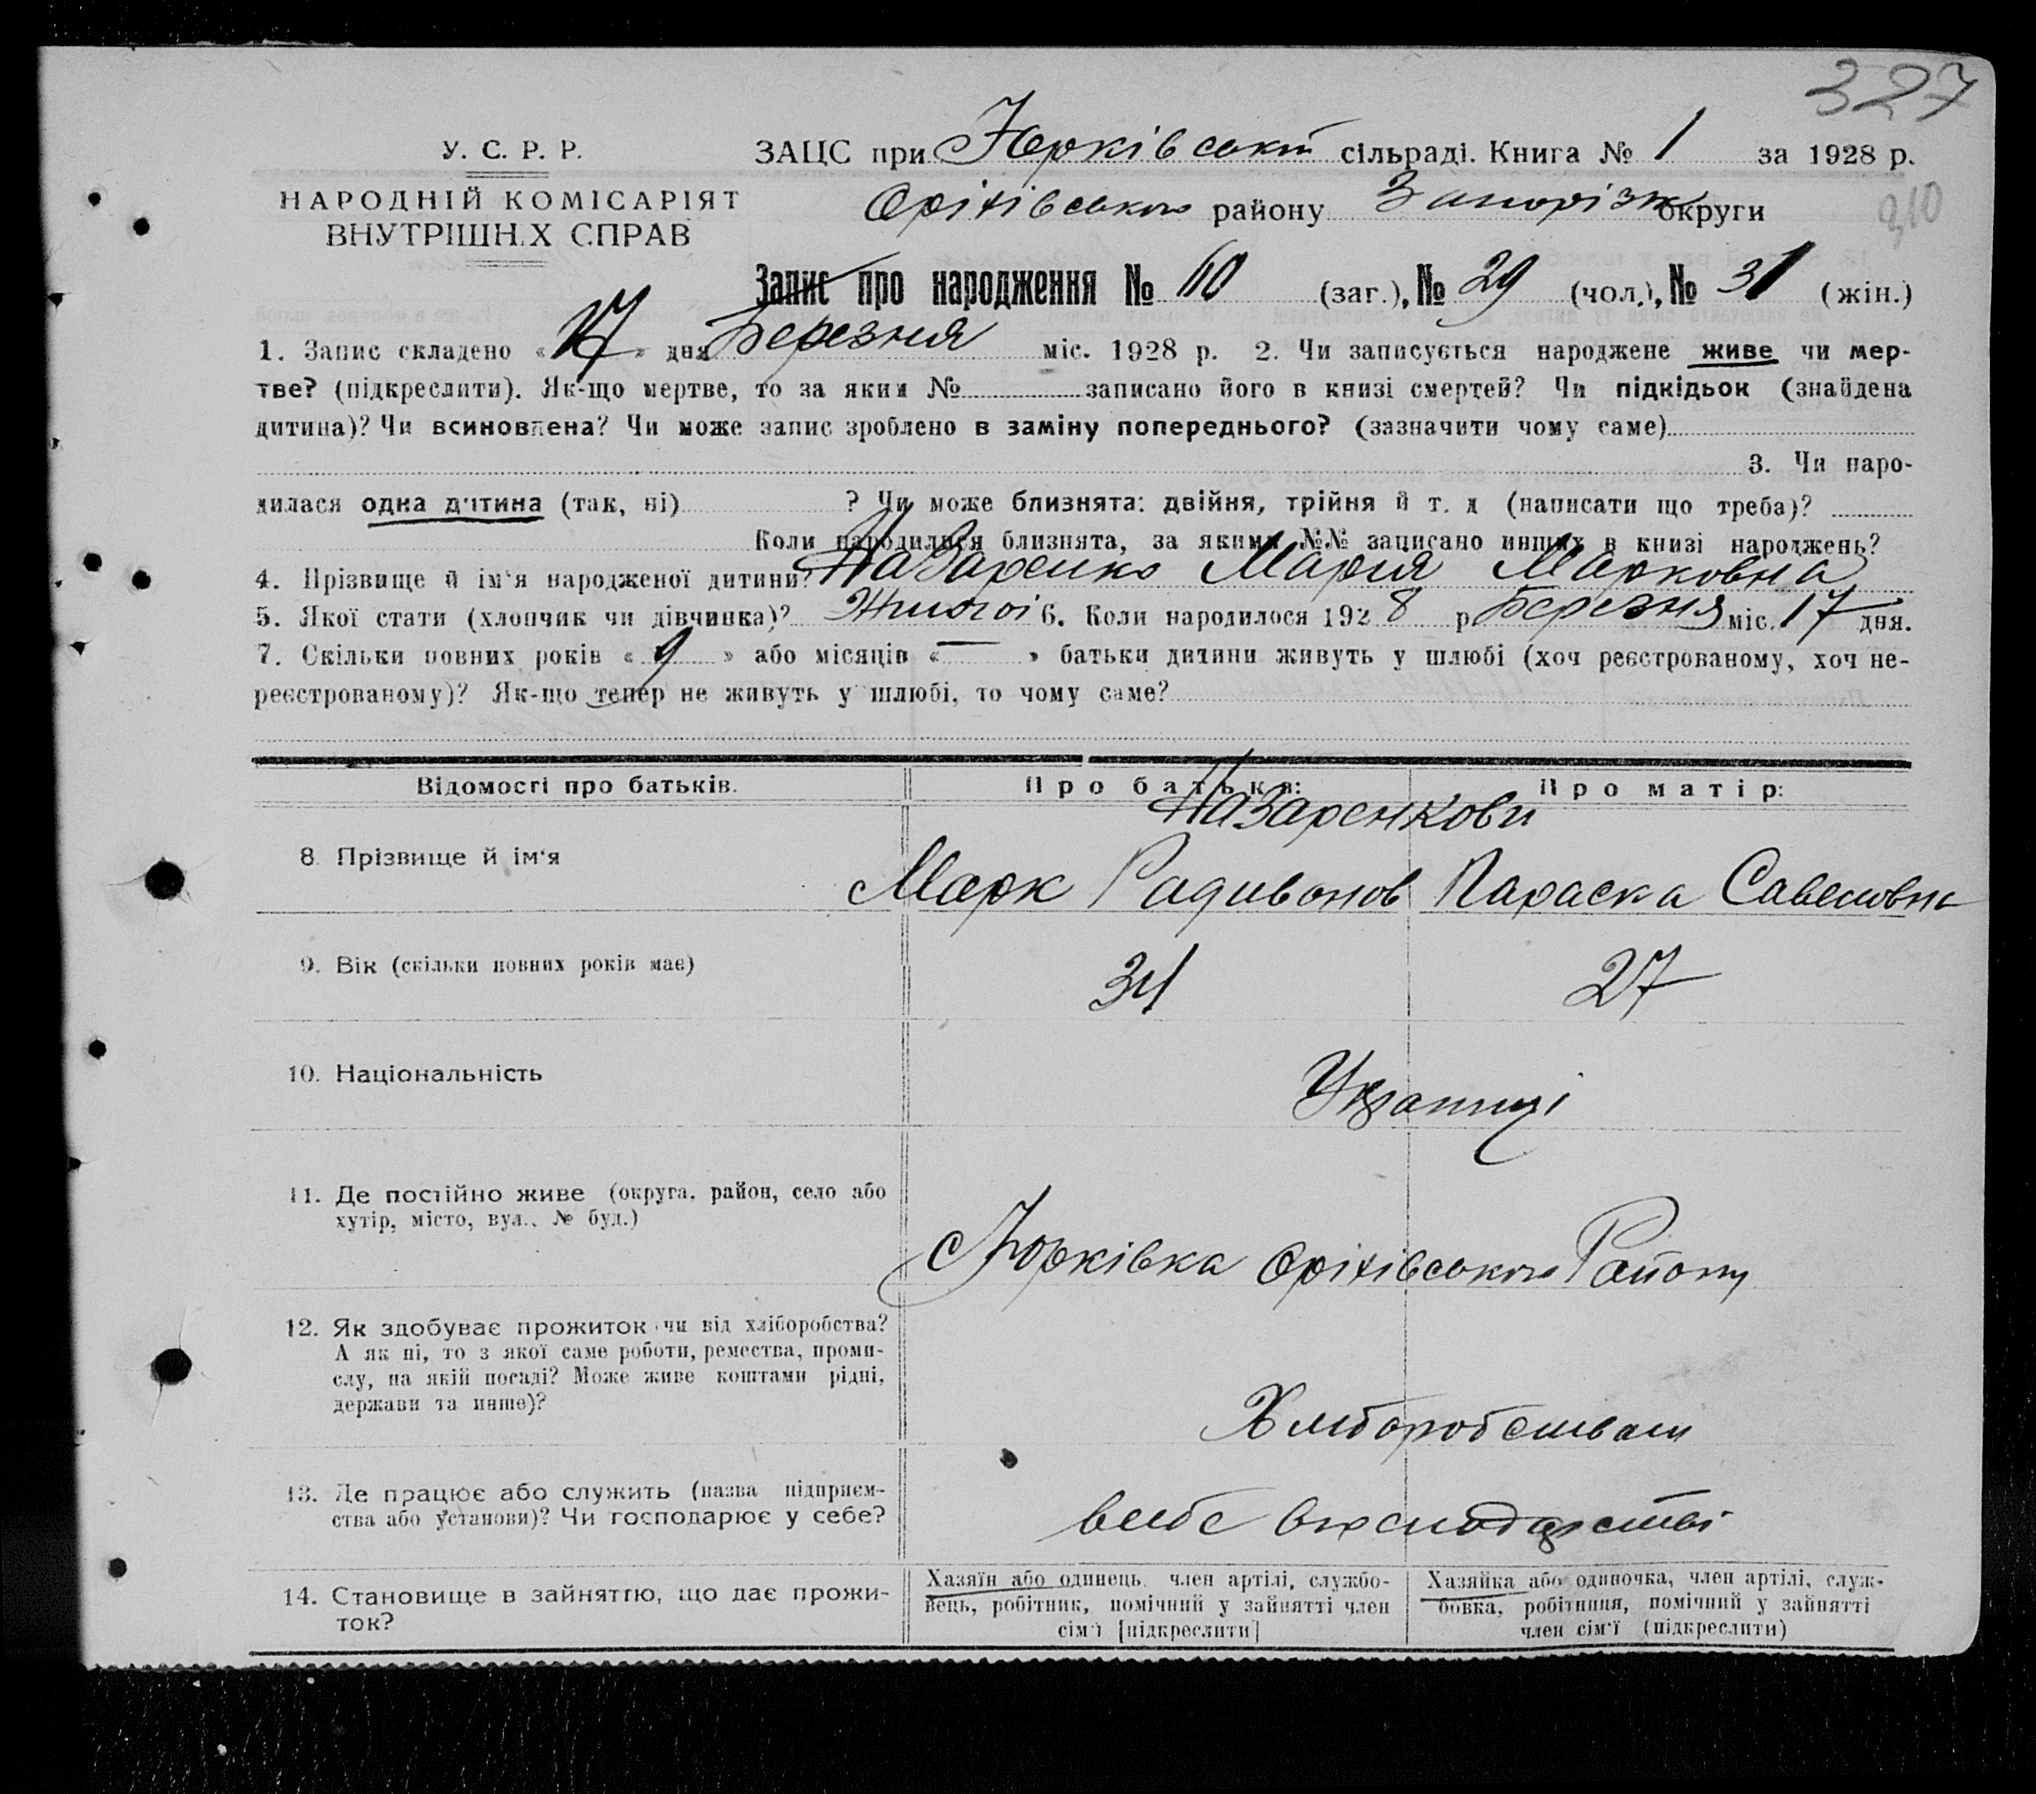 327
У. С. Р. Р.
ЗАЦС при Юрківській сільраді. Книга № 1 за 1928 р.
НАРОДНІЙ КОМІСАРІЯТ
ВНУТРІШНІХ СПРАВ
Оріхівського району Запорізк округи
310
Запис про народження № 60 (заг.), № 29 (чол.), № 31 (жін.)
1. Запис складено « 17 » дня Березня міс. 1928 р. 2. Чи записується народжене живе чи мер-
тве? (підкреслити). Як-що мертве, то за яким № записано його в книзі смертей? Чи підкідьок (знайдена
дитина)? Чи всиновлена? Чи може запис зроблено в заміну попереднього? (зазначити чому саме)
3. Чи наро-
дилася одна дитина (так, ні) ? Чи може близнята: двійня, трійня й т. д (написати що треба)?
Коли народилися близнята, за якими №№ записано инших в книзі народжень?
4. Прізвище й ім'я народженої дитини? Назаренко Мария Марковна
5. Якої стати (хлопчик чи дівчинка)? 6. Коли народилося 1928 р Березня міс. 17 дня.
7. Скільки повних років « 9 » або місяців « — » батьки дитини живуть у шлюбі (хоч реєстрованому, хоч не-
реєстрованому)? Як-що тепер не живуть у шлюбі, то чому саме?
Відомості про батьків. Про батька: Про матір:
Назаренкови
8. Прізвище й ім'я Марк Радивонов Параска Савеловна
9. Вік (скільки повних років має) 34 27
10. Національність Україниці
11. Де постійно живе (округа, район, село або
хутір, місто, вул., № буд.)
С Юрківка Оріхівського Району
12. Як здобуває прожиток чи від хліборобства?
А як ні, то з якої саме роботи, ремества, проми-
слу, на якій посаді? Може живе коштами рідні,
держави та инше)?
Хлиборобства
13. Де працює або служить (назва підприєм-
ства або установи)? Чи господарює у себе?
всибе господарстві
14. Становище в зайняттю, що дає прожи-
ток?
Хазяїн або одинець, член артілі, службо-
вець, робітник, помічний у зайнятті член
сім'ї [підкреслити]
Хазяйка або одиночка, член артілі, служ-
бовка, робітниця, помічний у зайнятті
член сім'ї (підкреслити)